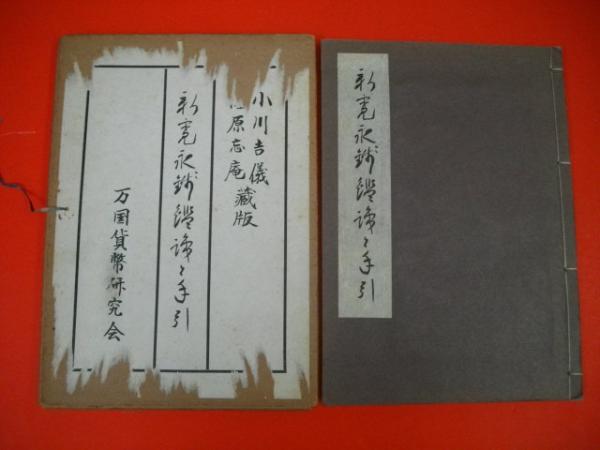 小川吉儀
原忘庵
藏版
新寛永銭鑑識と手引
万国貨幣研究会
新寛永銭鑑識と手引